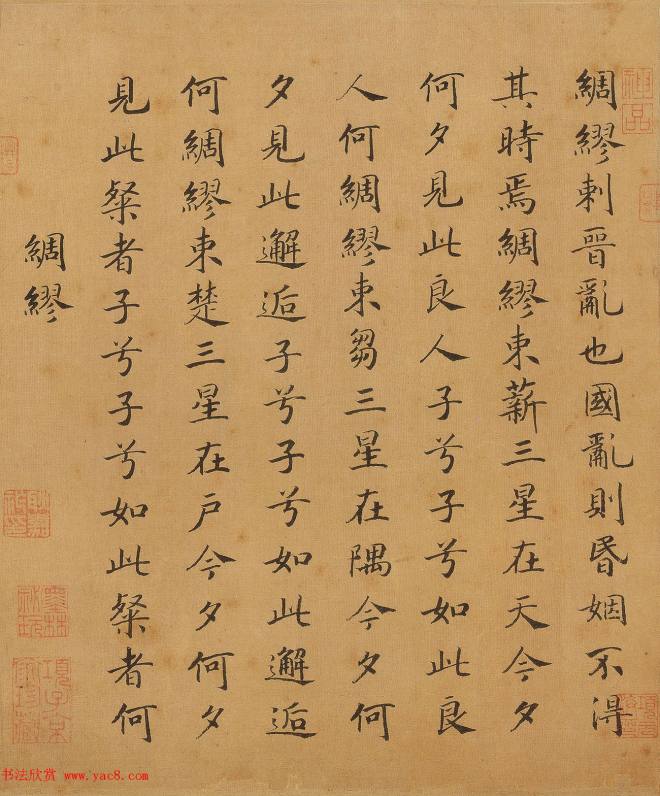 綢繆刺晉亂也國亂則昏姻不得
其時焉綢繆束薪三星在天今夕
何夕見此良人子兮子兮如此良
人何綢繆束芻三星在隅今夕何
夕見此邂逅子兮子兮如此邂逅
何綢繆束楚三星在戶今夕何夕
見此粲者子兮子兮如此粲者何
綢繆
神品
項子京家珍藏
书法欣赏 www.yac8.com